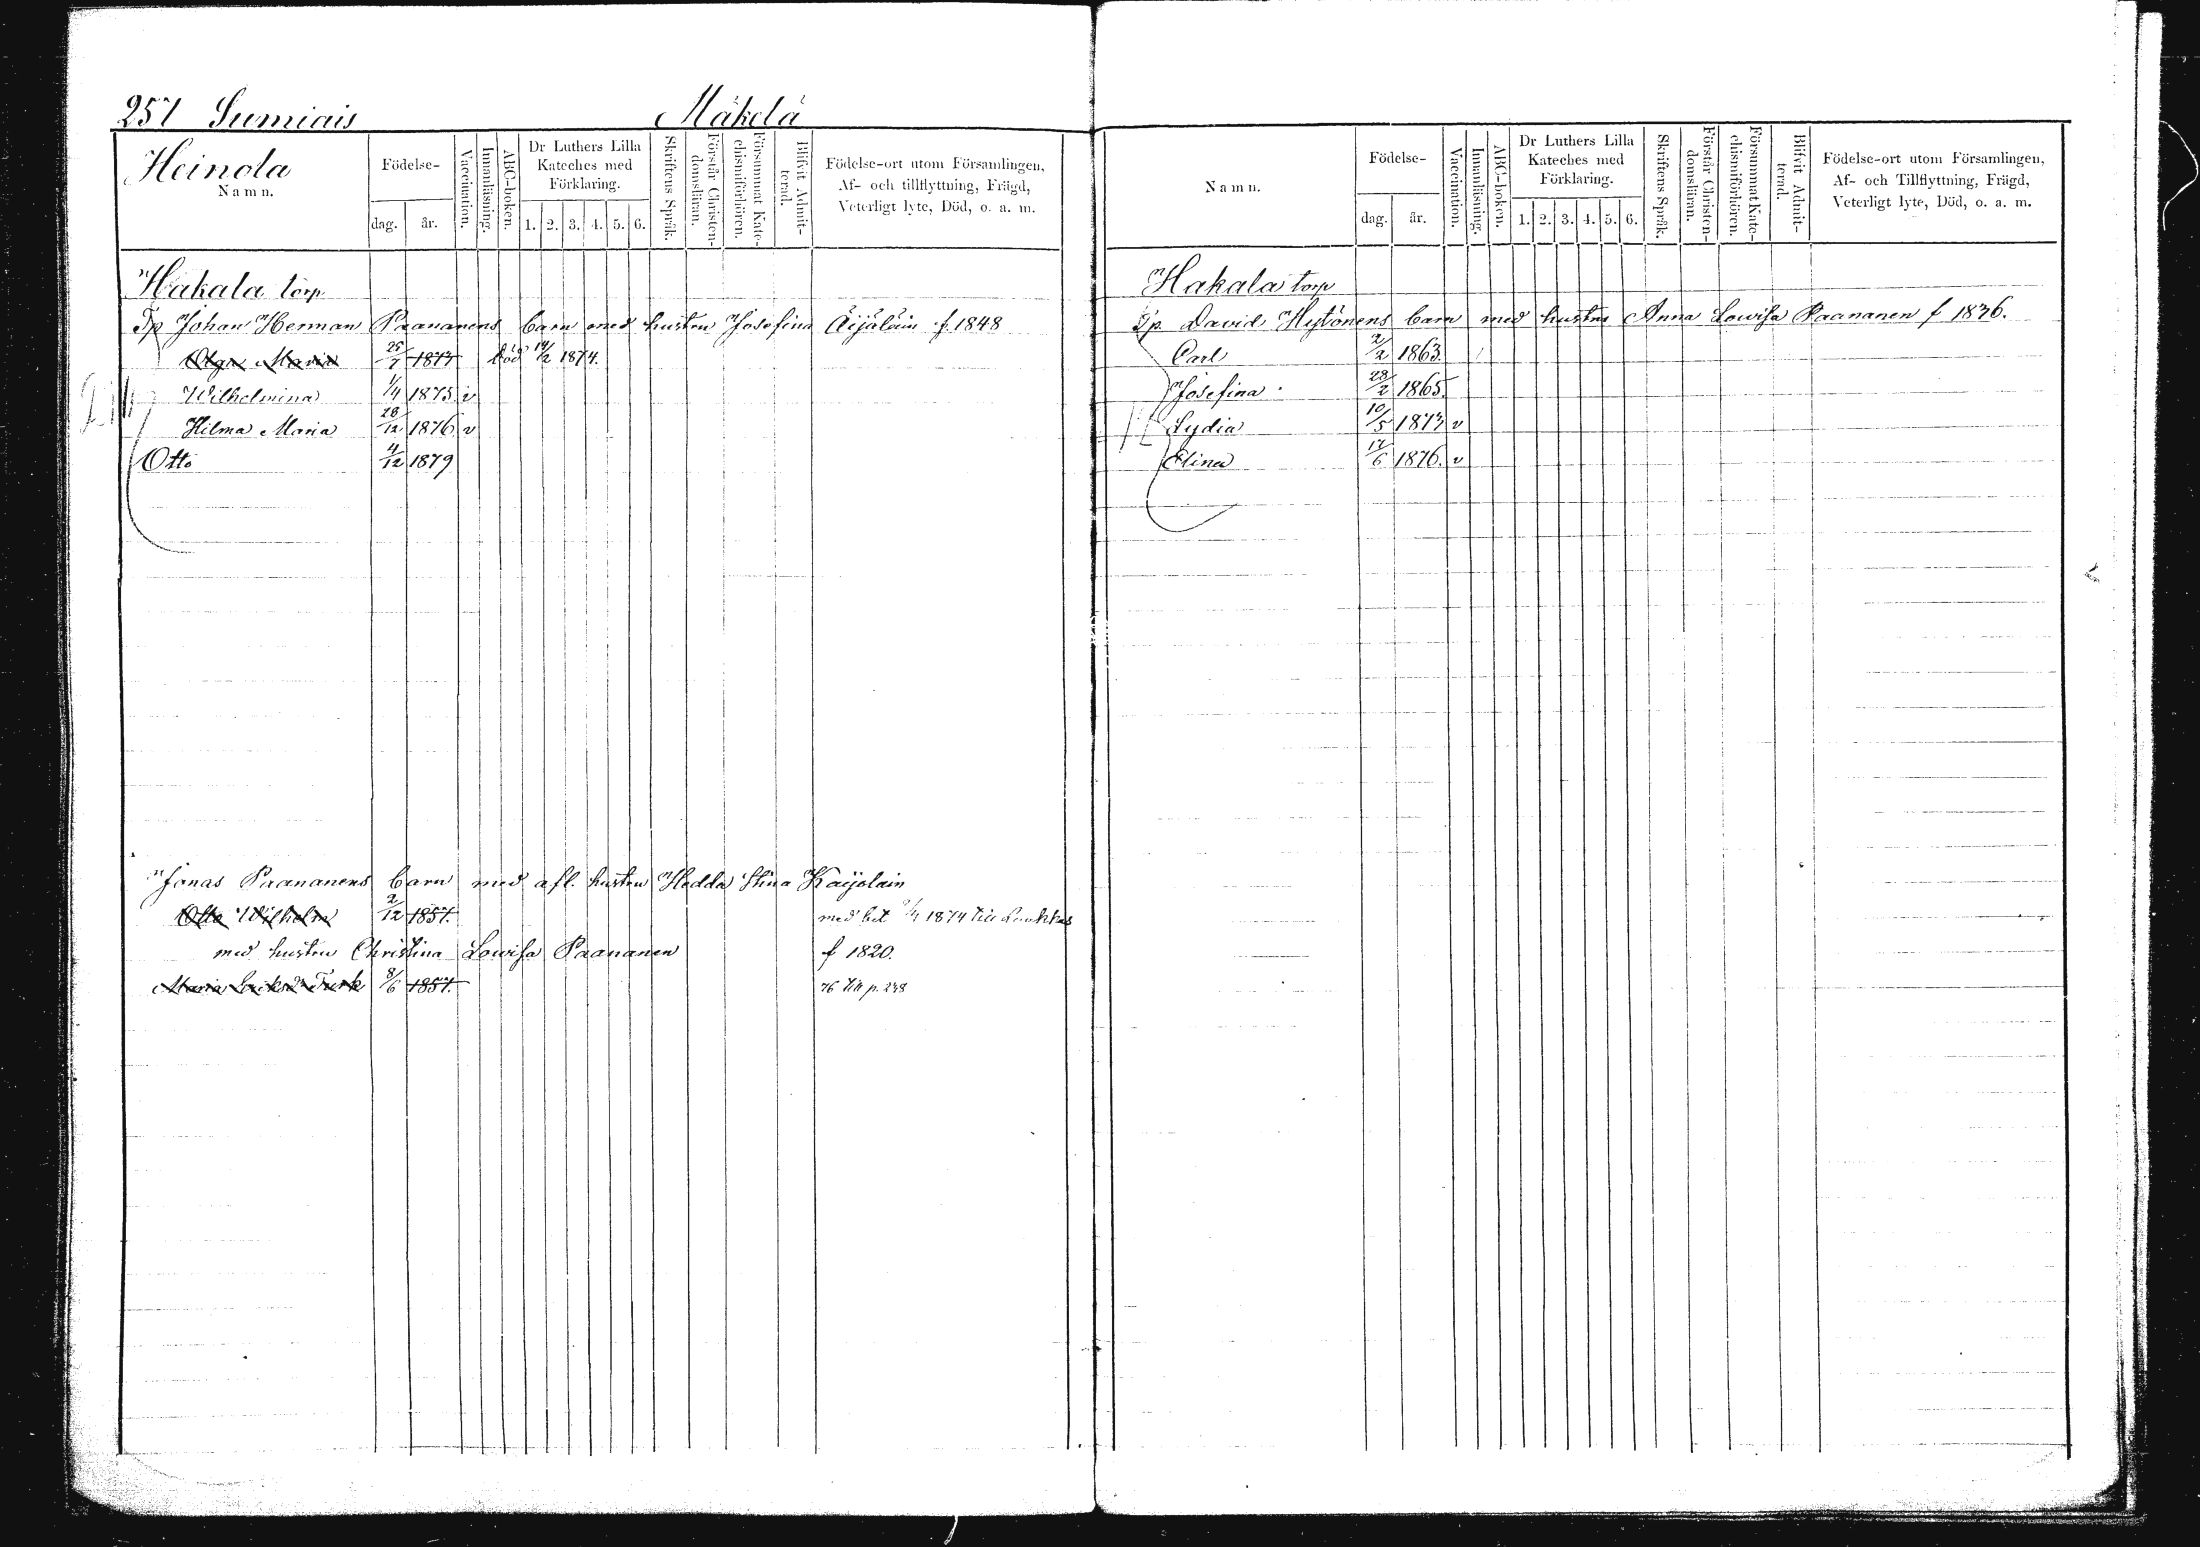 257 Sumiais Mäkelä
Heinola
Namn.
Födelse-
dag. år.
Vaccination.
Innanläsning.
ABC-boken.
Dr Luthers Lilla Kateches med Förklaring.
1. 2. 3. 4. 5. 6.
Skriftens Språk.
Förstår Christendomsläran.
Försummat Katechismiförhören.
Blifvit Admitterad.
Födelse-ort utom Församlingen,
Af- och tillflyttning, Frägd,
Veterligt lyte, Död, o. a. m.
Hakala torp
Tp Johan Herman Paananens barn med hustru Josefina Äijäläin f. 1848
Olga Maria 25/7 1873 död 14/2 1874.
Wilhelmina 1/4 1875 v
Hilma Maria 28/12 1876 v
Otto 4/12 1879
Jonas Paananens barn med afl. hustru Hedda Stina Kaijolain
Otto Wilhelm 2/12 1857. med bet 1874 till Laukkas
med hustru Christina Lowisa Paananen f 1820.
Maria Eriksdr Turk 8/6 1857. 76 till p. 248
Namn.
Födelse-
dag. år.
Vaccination.
Innanläsning.
ABC-boken.
Dr Luthers Lilla Kateches med Förklaring.
1. 2. 3. 4. 5. 6.
Skriftens Språk.
Förstår Christendomsläran.
Försummat Katechismiförhören.
Blifvit Admitterad.
Födelse-ort utom Församlingen,
Af- och Tillflyttning, Frägd,
Veterligt lyte, Död, o. a. m.
Hakala torp
Tp. David Hytönens barn med hustru Anna Lowisa Paananen f 1836.
Carl 2/2 1863.
Josefina 28/2 1865.
Lydia 10/5 1873 v
Elina 17/6 1876. v